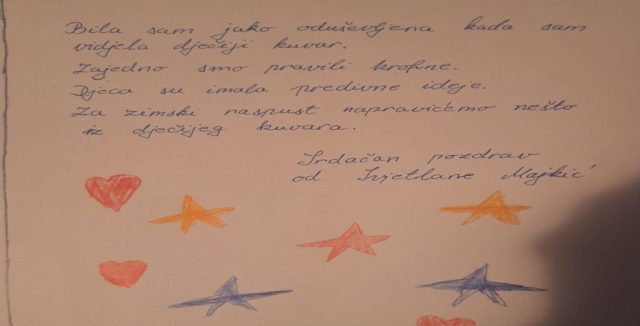 Bila sam jako oduševljena kada sam
vidjela dječiji kuvar.
Zajedno smo pravili krofne.
Djeca su imala predivne ideje.
Za zimski raspust napravićemo nešto
iz dječijeg kuvara.
Srdačan pozdrav
od Svjetlane Majkić